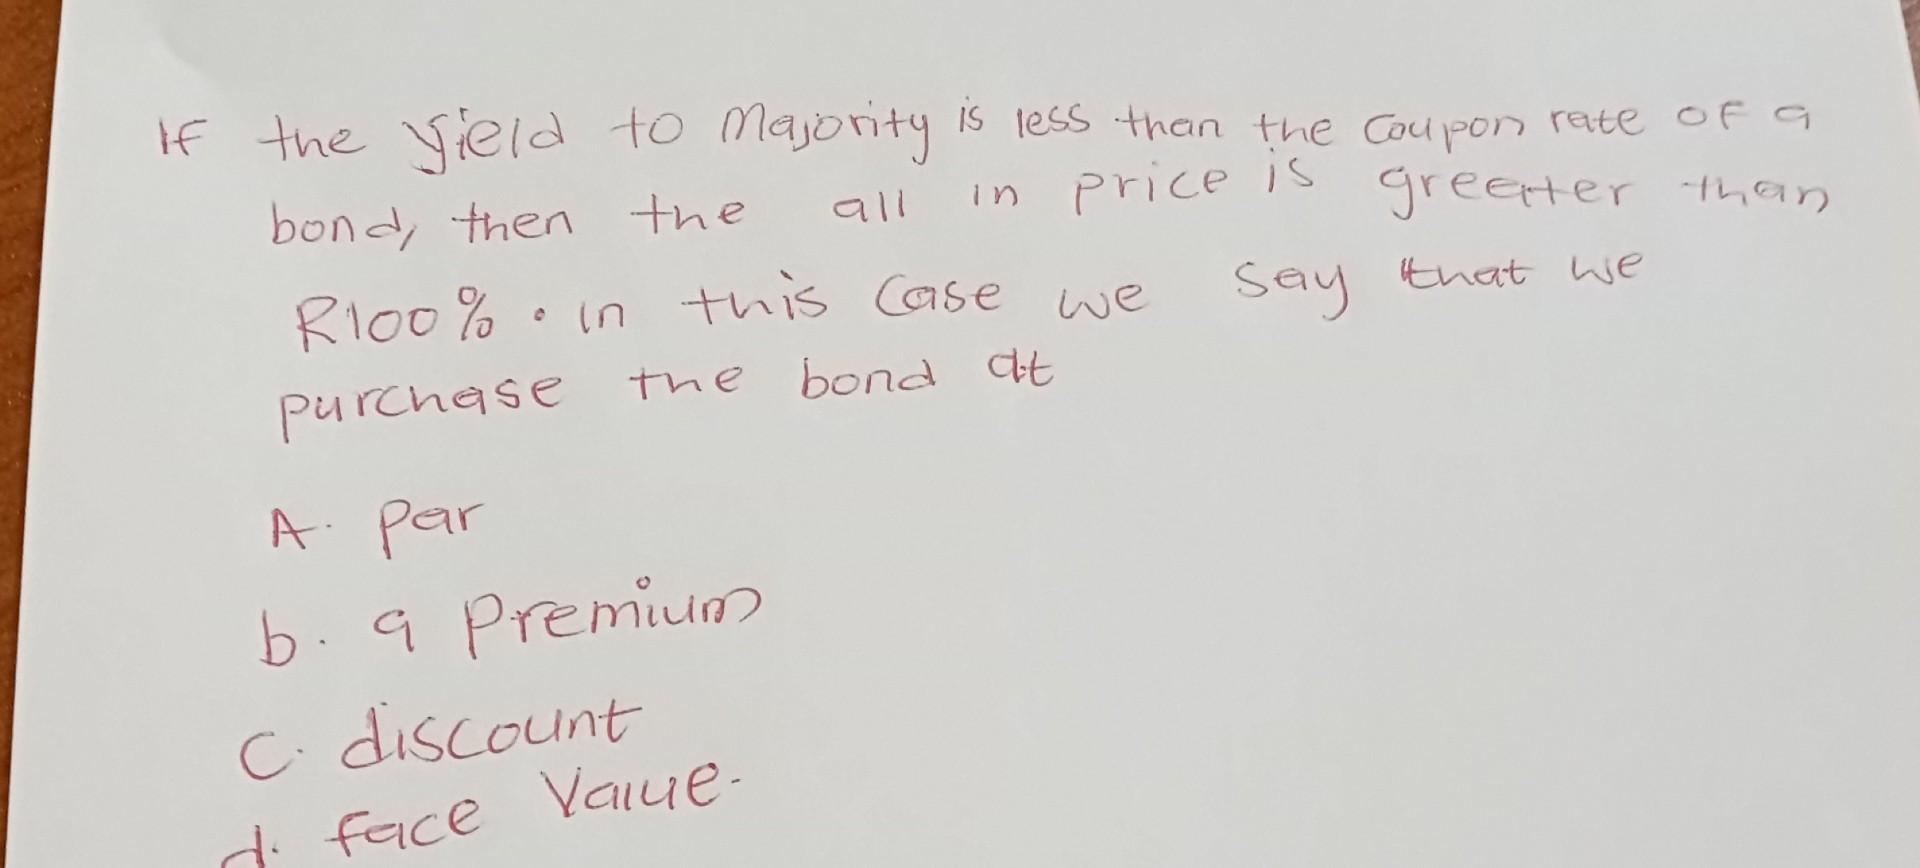 If the yield to Majority is less than the Coupon rate of a
bond, then the all in price is greater than
R100%. in this case we say that we
purchase the bond at
A. par
b. a premium
C. discount
d. face Value.